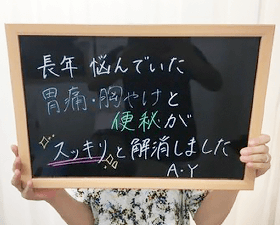 長年 悩んでいた
胃痛・胸やけと
便秘が
スッキリと解消しました
A.Y